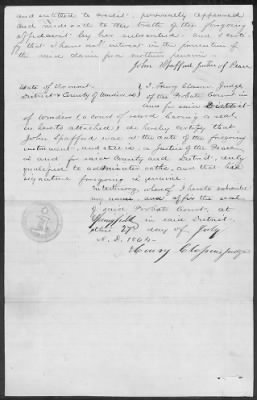 and entitled to credit, personally appeared
and made oath to the truth of the foregoing
affidavit by her subscribed and I certify
that I have not interest in the prosecution of
the said claim for military pension
John Spafford Justice of Peace
State of Vermont
District & County of Windsor } I Henry Closson Judge
of the Probate Court in
and for said District
of Windsor (a court of record having a seal
hereto attached) do hereby certify that
John Spafford was at the date of the foregoing
instrument, and still is, a Justice of the Peace
in and for said County and District, duly
qualified to administer oaths, and that his
signature foregoing is genuine.
In testimony whereof I hereto subscribe
my name, and affix the seal
of said Probate Court, at
Springfield in said District
this 27th day of July
A. D. 1864
Henry Closson Judge